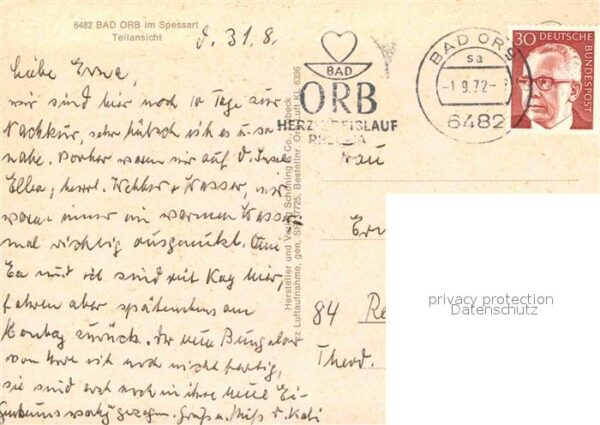 6482 BAD ORB im Spessart
Teilansicht
d. 31.8.
Liebe Erna,
wir sind hier noch 10 Tage zur
Nachkur, sehr hübsch ist es u. so
nahe. Vorher waren wir auf d. Insel
Elba, herrl. Wetter + Wasser, wir
waren immer im warmen Wasser
mal richtig ausgenutzt.
und sind mit Kay hier,
fahren aber spätestens am
Montag zurück. Der neue Bungalow
von ist noch nicht fertig,
sie sind erst noch in ihre neue Ei-
gentumswohng gezogen. Gruß u. Kuß d. Kati
BAD
ORB
HERZ KREISLAUF
RHEUMA
BAD ORB
sa
-1.9.72-
6482
30 DEUTSCHE
BUNDESPOST
Hersteller und Verlag Schöning & Co. Lübeck
Luftaufnahme, gen. SH 7725, Bestellnr. 6396
Frau
Ern
84 Re
Theod.
privacy protection
Datenschutz